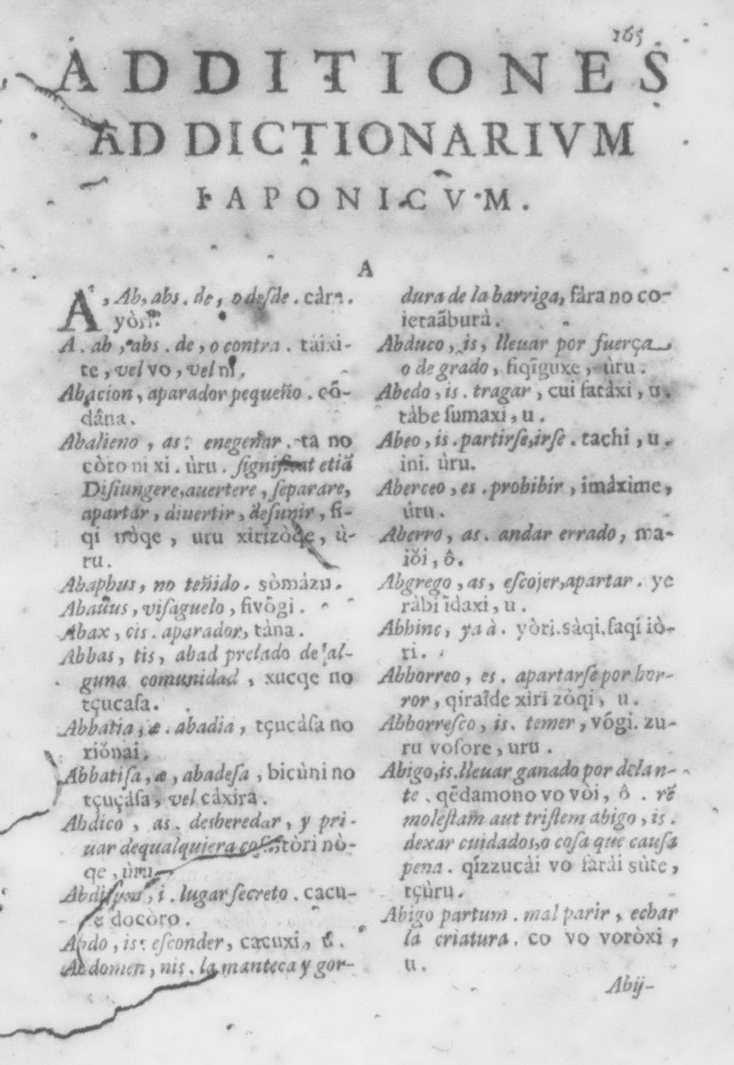 165
ADDITIONES
AD DICTIONARIVM
IAPONICVM.
A
A, Ab, abs. de, o deſde. càra.
yòri.
A. ab, abs. de, o contra. táixi-
te, vel vo, vel ni.
Abacion, aparador pequeño. cō-
dána.
Abalieno, as. enegenar. ta no
còro ni xi. ùru. ſignificat etiã
Diſiungere, auertere, ſeparare,
apartar, diuertir, deſunir, fi-
qi nòqe, uru xirizòqe, ù-
ru.
Abaphus, no teñido. sòmázu.
Abauus, viſaguelo, fivǒgi.
Abax, cis. aparador, tàna.
Abbas, tis, abad prelado de al-
guna comunidad, xucqe no
tçucaſa.
Abbatia, æ. abadia, tçucàſa no
riǒnai.
Abbatiſa, æ, abadeſa, bicùni no
tçuçàſa, vel càxirà.
Abdico, as. desheredar, y pri-
uar dequalquiera coſa tòri nò-
qe, ùru.
i. lugar ſecreto. cacu-
docòro.
Abdo, is. eſconder, cacuxi, ù.
Abdomen, nis. la manteca y gor-
dura de la barriga, fàra no co-
ietaãburà.
Abduco, is, lleuar por fuerça
o de grado, fiqīguxe, ùru.
Abedo, is. tragar, cui fatàxi, u.
tàbe ſumaxi, u.
Abeo, is. partirſe, irſe. tachi, u.
ini. ùru.
Aberceo, es. prohibir, imàxime,
úru.
Aberro, as. andar errado, ma-
iǒi, ô.
Abgrego, as, eſcojer, apartar. ye
ràbi īdaxi, u.
Abhinc, ya à. yòri. sàqi. ſaqi iò-
ri.
Abhorreo, es. apartarſe por hor-
ror, qiraīde xiri zòqi, u.
Abhorreſco, is. temer, vǒgi. zu-
ru voſore, uru.
Abigo, is. lleuar ganado por delan-
te. qēdamono vo vòi, ô. rē
moleſtam aut triſtem abigo, is.
dexar cuidados, o coſa que cauſa
pena. qīzzucái vo fàrái sùte,
tçùru.
Abigo partum. mal parir, echar
la criatura. co vo voròxi,
u.
Abij-